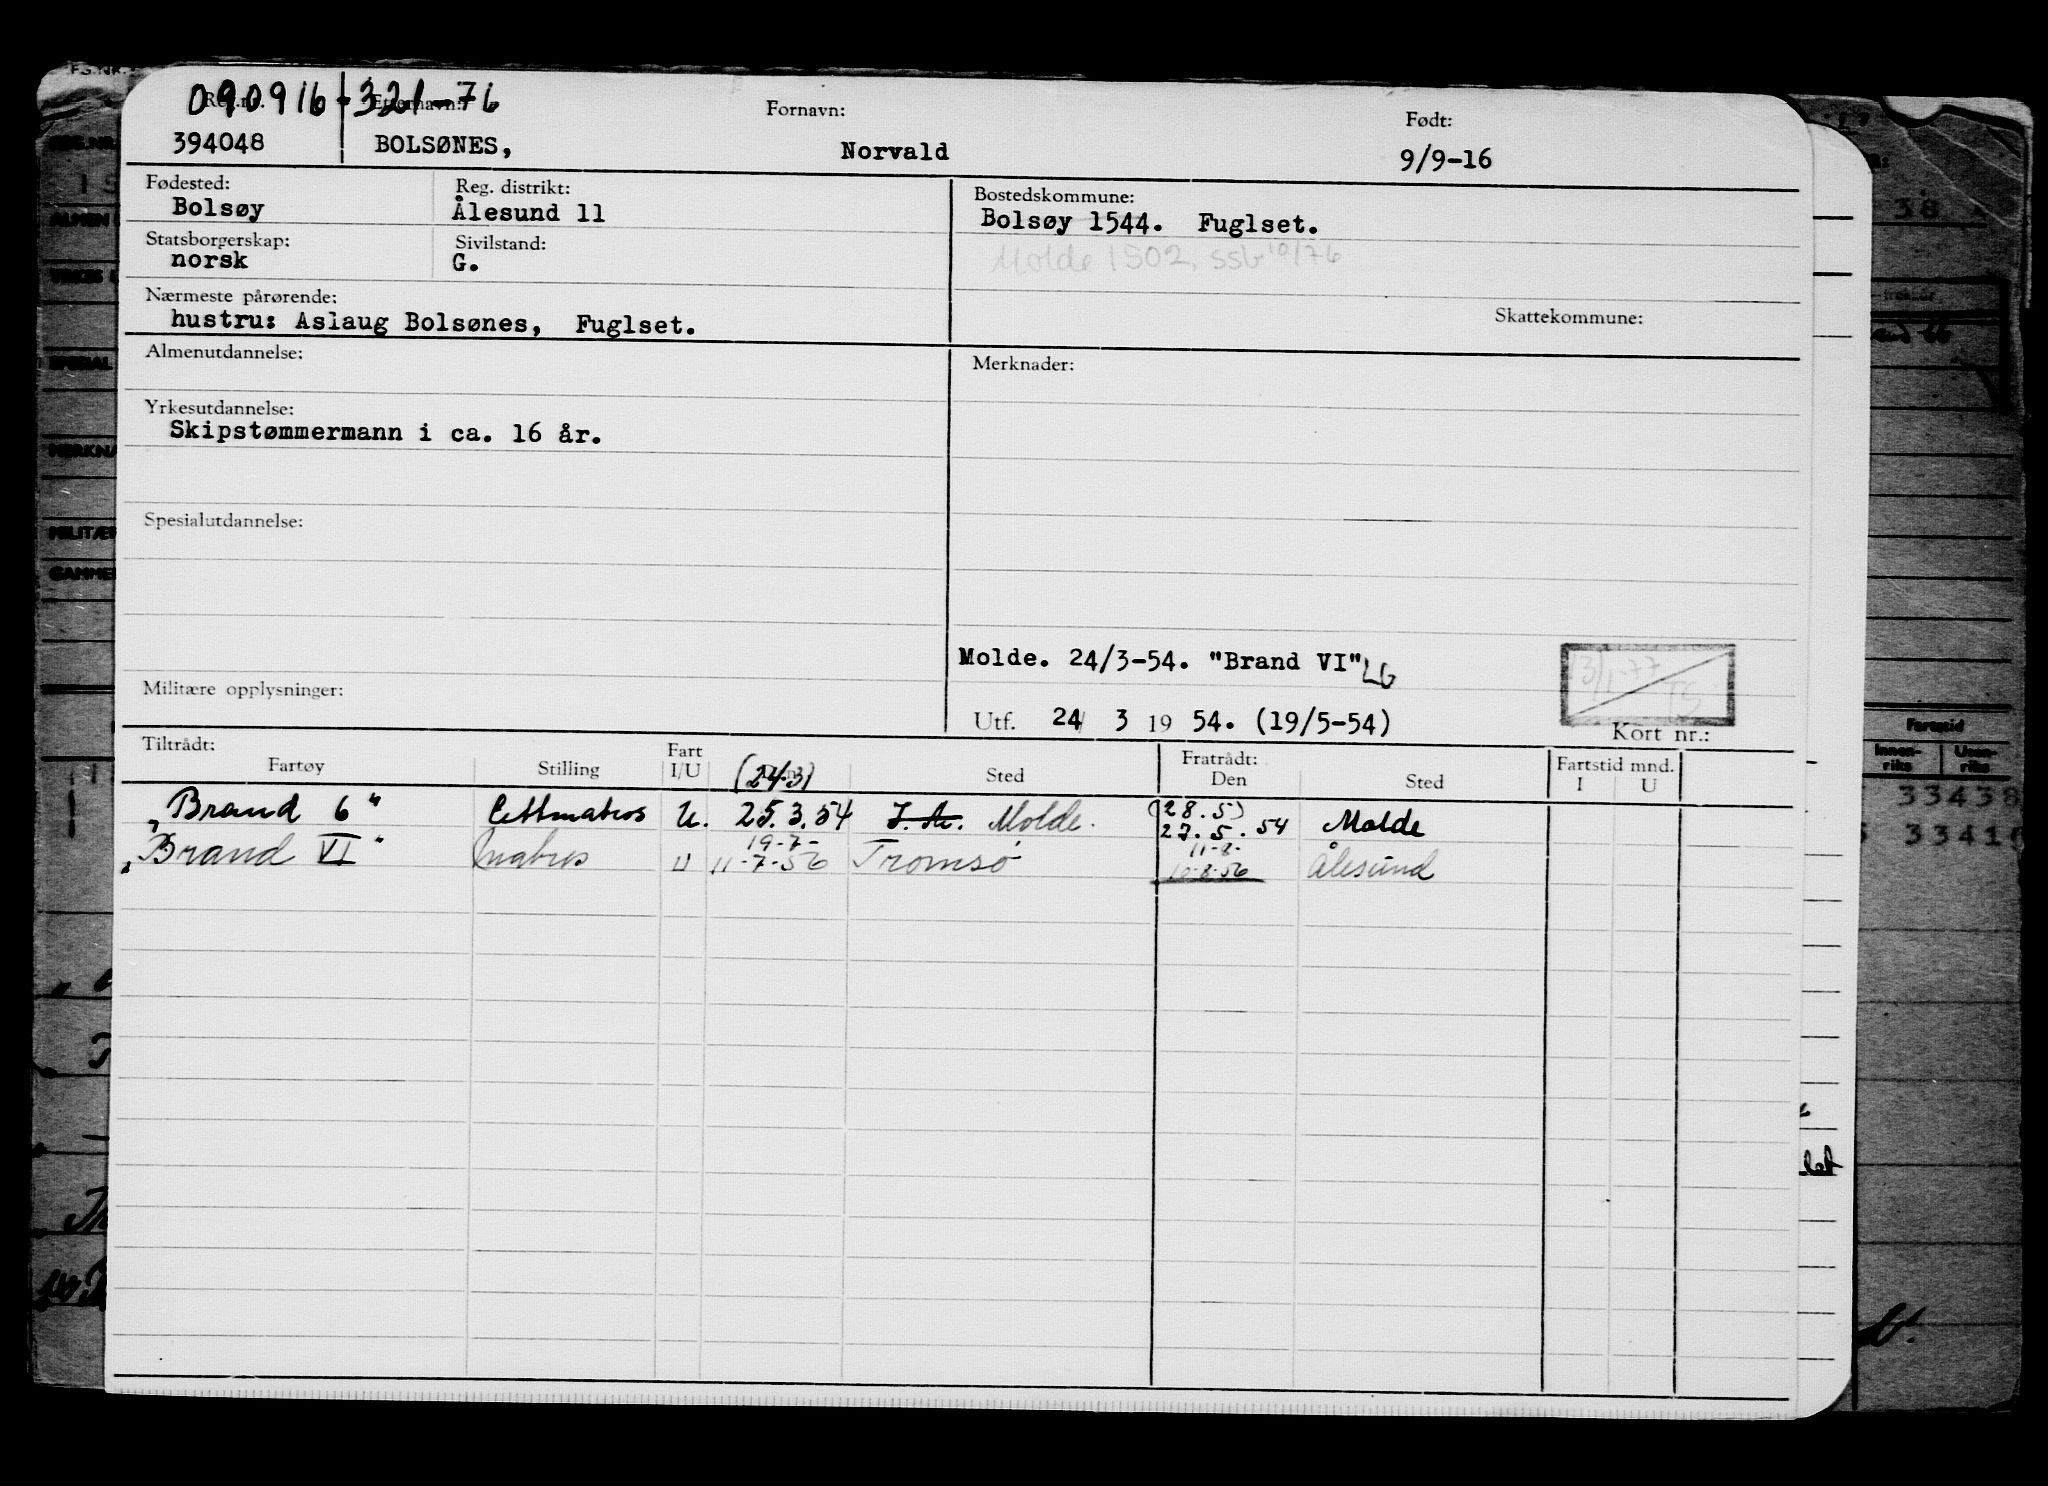 090916-321-76
Reg.nr. Etternavn: Fornavn: Født:
394048 BOLSØNES, Norvald 9/9-16
Fødested: Reg. distrikt: Bostedskommune:
Bolsøy Ålesund 11 Bolsøy 1544. Fuglset.
Statsborgerskap: Sivilstand:
norsk G. Molde 1502, ssb 10/76
Nærmeste pårørende: Skattekommune:
hustru: Aslaug Bolsønes, Fuglset.
Almenutdannelse: Merknader:
Yrkesutdannelse:
Skipstømmermann i ca. 16 år.
Spesialutdannelse:
Molde. 24/3-54. "Brand VI" LG
13/1-77 TS
Militære opplysninger:
Utf. 24/ 3 19 54. (19/5-54)
Kort nr.:
Tiltrådt: Fart Fratrådt: Fartstid mnd.
Fartøy Stilling I/U (24.3) Sted Den Sted I U
"Brand 6" Lettmatros U. 25.3.54 Molde. (28.5) 27.5.54 Molde
"Brand VI" matros U 19-7- 11-7-56 Tromsø 11-8- 10-8-56 Ålesund
Fartstid
Innen-riks Uten-riks
33438
3341